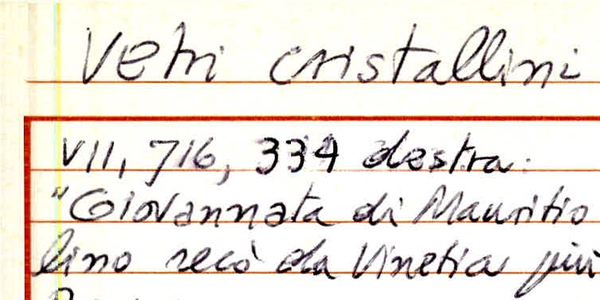 Vetri cristallini
VII, 716, 334 destra:
"Giovannata di Mauritio
lino recò da Vinetia più